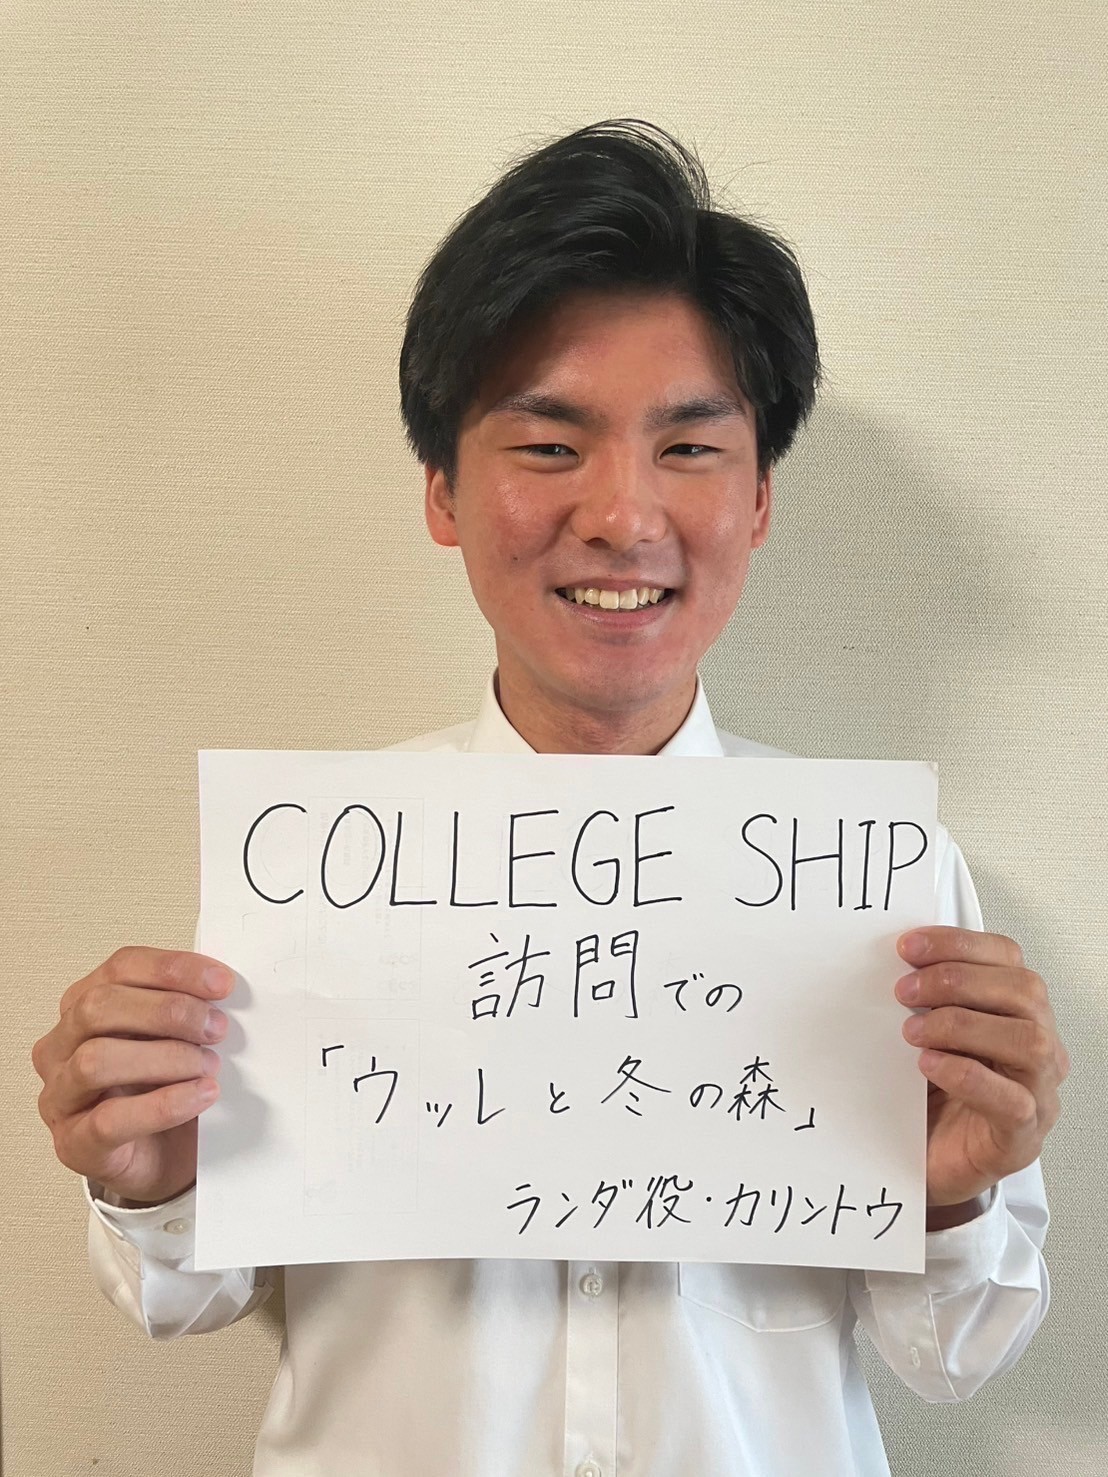 COLLEGE SHIP
訪問での
「ウッレと冬の森」
ランダ役・カリントウ